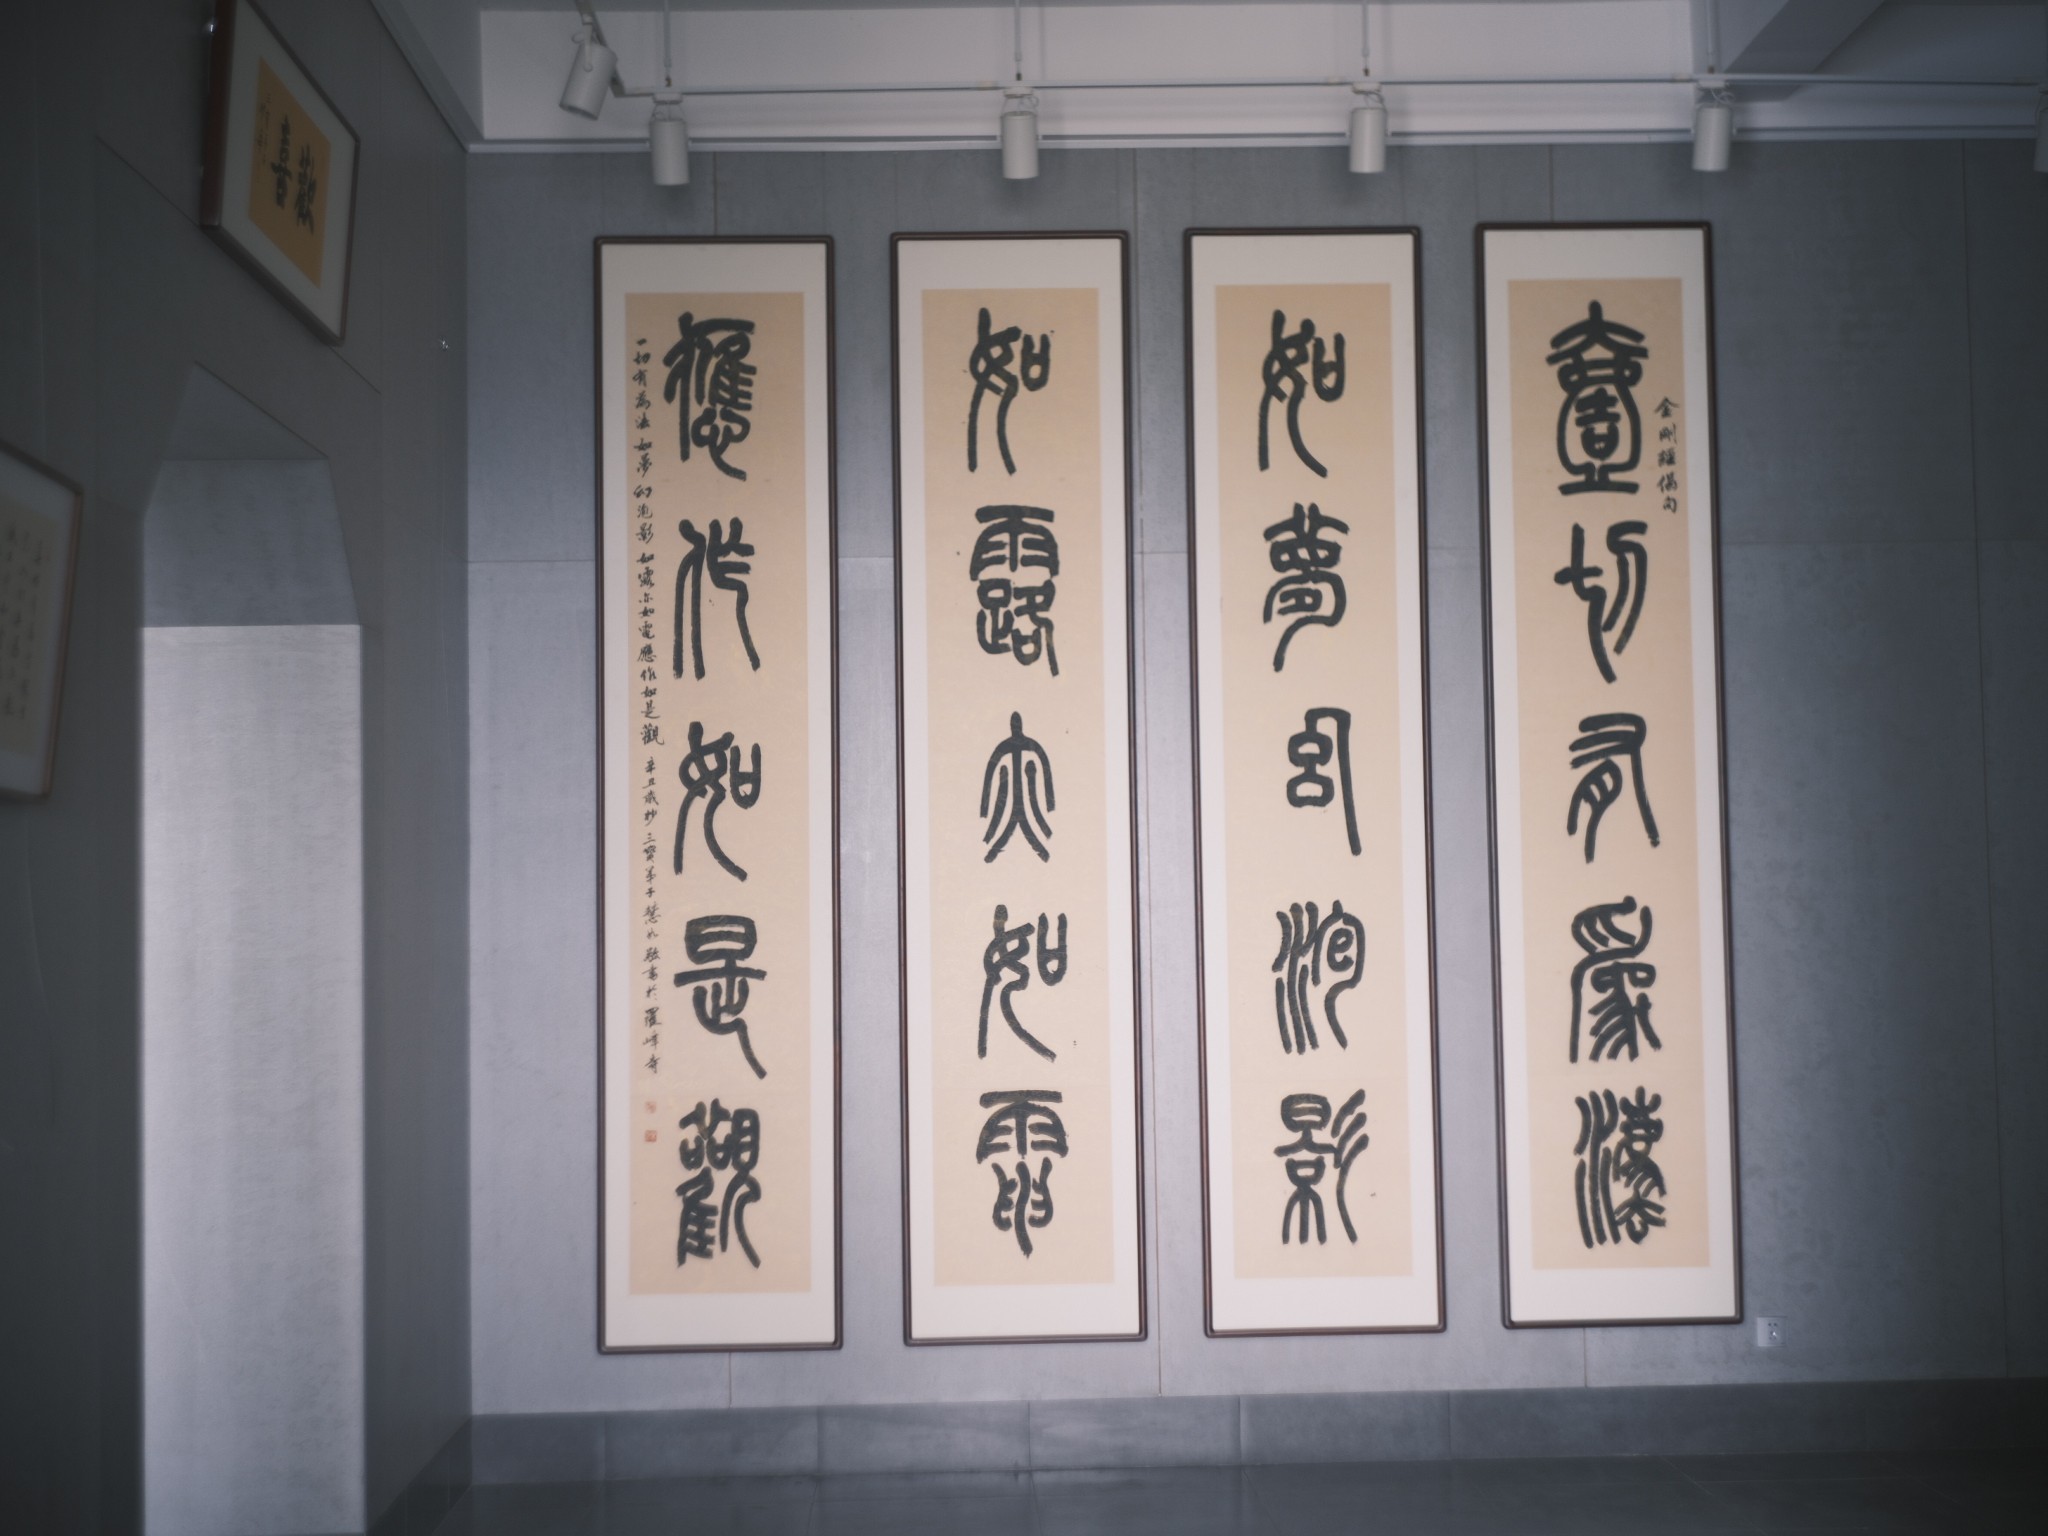 金剛經偈句
壹切有爲法
如夢幻泡影
如露亦如電
應作如是觀
一切有為法如夢幻泡影如露亦如電應作如是觀辛丑歲杪三寶弟子慧如敬書於羅峰奇
歡喜